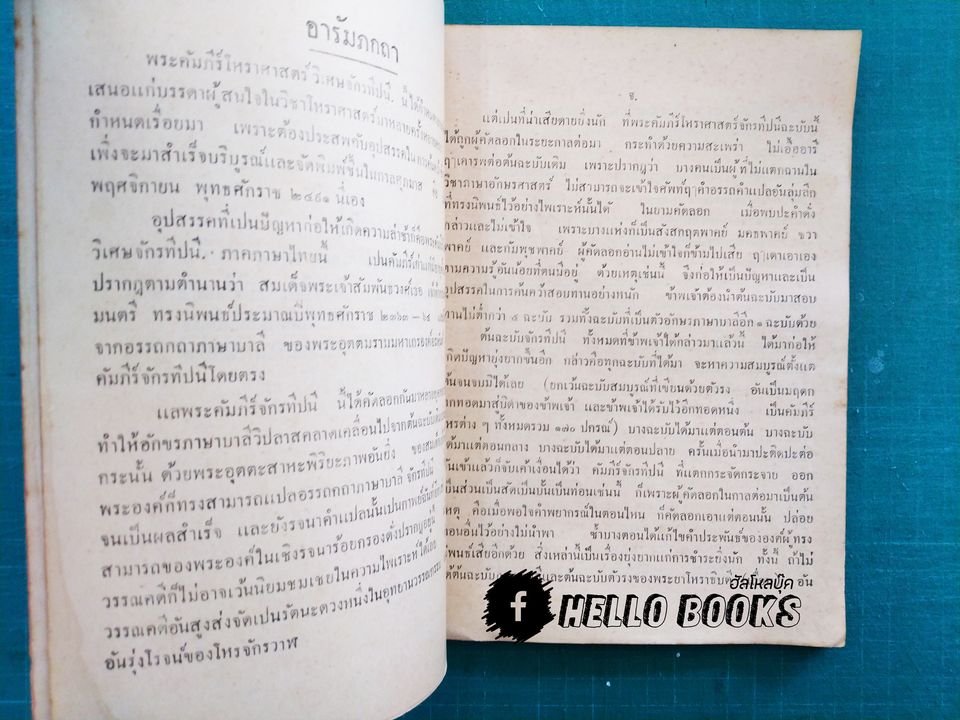 อารัมภกถา
พระคัมภีร์โหราศาสตร์วิเศษจักรทีปนี. นี้ได้
เสนอแก่บรรดาผู้สนใจในวิชาโหราศาสตร์มาหลายครั้ง
กำหนดเรื่อยมา เพราะต้องประสพกับอุปสรรคในการ
เพิ่งจะมาสำเร็จบริบูรณ์และจัดพิมพ์ขึ้นในกาลศุภมาส
พฤศจิกายน พุทธศักราช ๒๔๙๑ นี่เอง
อุปสรรคที่เปนปัญหาก่อให้เกิดความล่าช้าก็คือพระคัมภีร์
วิเศษจักรทีปนี. ภาคภาษาไทยนี้ เปนคัมภีร์เก่าแก่
ปรากฎตามตำนานว่า สมเด็จพระเจ้าสัมพันธวงศ์เธอ
มนตรี ทรงนิพนธ์ประมาณปีพุทธศักราช ๒๓๖๓ – ๖๔
จากอรรถกถาภาษาบาลี ของพระอุตตมรามมหาเถรองค์
คัมภีร์จักรทีปนีโดยตรง
แลพระคัมภีร์จักรทีปนี นี้ได้คัดลอกกันมาหลาย
ทำให้อักขรภาษาบาลีวิปลาสคลาดเคลื่อนไปจากต้นฉะบับเดิม
กระนั้น ด้วยพระอุตตะสาหะพิริยะภาพอันยิ่ง ของสมเด็จ
พระองค์ก็ทรงสามารถแปลอรรถกถาภาษาบาลี จักรทีปนี
จนเป็นผลสำเร็จ และยังรจนาคำแปลนั้นเปนกาพย์ฉันท์
สามารถของพระองค์ในเชิงรจนาร้อยกรองดั่งปรากฎอยู่นี้
วรรณคดีก็ไม่อาจเว้นนิยมชมเชยในความไพเราะห์ได้เลย
วรรณคดีอันสูงส่งจัดเปนรัตนะดวงหนึ่งในอุทยานวรรณกรรม
อันรุ่งโรจน์ของโหรจักรวาฬ
ข.
แต่เปนที่น่าเสียดายยิ่งนัก ที่พระคัมภีร์โหราศาสตร์จักรทีปนีฉะบับนี้
ได้ถูกผู้คัดลอกในระยะกาลต่อมา กระทำด้วยความสะเพร่า ไม่เอื้ออารี
ฤๅเคารพต่อต้นฉะบับเดิม เพราะปรากฎว่า บางคนเป็นผู้ที่ไม่แตกฉานใน
วิชาภาษาอักษรศาสตร์ ไม่สามารถจะเข้าใจศัพท์ฤๅคำอรรถคำแปลอันลุ่มลึก
ที่ทรงนิพนธ์ไว้อย่างไพเราะห์นั้นได้ ในยามคัดลอก เมื่อพบปะคำดั่ง
กล่าวและไม่เข้าใจ เพราะบางแห่งก็เป็นสังสกฤตพากย์ มคธพากย์ ชวา
พากย์ และกัมพุชพากย์ ผู้คัดลอกอ่านไม่เข้าใจก็ข้ามไปเสีย ฤๅเดาเอาเอง
ตามความรู้อันน้อยที่ตนมีอยู่ ด้วยเหตุเช่นนี้ จึงก่อให้เป็นปัญหาและเป็น
อุปสรรคในการค้นคว้าสอบทานอย่างหนัก ข้าพเจ้าต้องนำต้นฉะบับมาสอบ
ทานไม่ต่ำกว่า ๕ ฉะบับ รวมทั้งฉะบับที่เป็นตัวอักษรภาษาบาลีอีก ๑ ฉะบับด้วย
ต้นฉะบับจักรทีปนี ทั้งหมดที่ข้าพเจ้าได้กล่าวมาแล้วนี้ ได้มาก่อให้
เกิดปัญหายุ่งยากขึ้นอีก กล่าวคือทุกฉะบับที่ได้มา จะหาความสมบูรณ์ตั้งแต่
ต้นจนจบมิได้เลย (ยกเว้นฉะบับสมบูรณ์ที่เขียนด้วยตัวรง อันเป็นมฤดก
ตกทอดมาสู่บิดาของข้าพเจ้า และข้าพเจ้าได้รับไว้อีกทอดหนึ่ง เป็นคัมภีร์
โหรต่าง ๆ ทั้งหมดรวม ๑๗๐ ปกรณ์) บางฉะบับได้มาแต่ตอนต้น บางฉะบับ
ได้มาแต่ตอนกลาง บางฉะบับได้มาแต่ตอนปลาย ครั้นเมื่อนำมาปะติดปะต่อ
กันเข้าแล้วก็จับเค้าเงื่อนได้ว่า คัมภีร์จักรทีปนี ที่แตกกระจัดกระจาย ออก
เป็นส่วนเป็นสัดเป็นบั้นเป็นท่อนเช่นนี้ ก็เพราะผู้คัดลอกในกาลต่อมาเป็นต้น
เหตุ คือเมื่อพอใจคำพยากรณ์ในตอนไหน ก็คัดลอกเอาแต่ตอนนั้น ปล่อย
ตอนอื่นไว้อย่างไม่นำพา ซ้ำบางตอนได้แก้ไขคำประพันธ์ขององค์ผู้ทรง
นิพนธ์เสียอีกด้วย สิ่งเหล่านี้เป็นเรื่องยุ่งยากแก่การชำระยิ่งนัก ทั้งนี้ ถ้าไม่
ได้ต้นฉะบับ และต้นฉะบับตัวรงของพระยาโหราธิบดี อัน
f
ฮัลโหลบุ๊ค
HELLO BOOKS